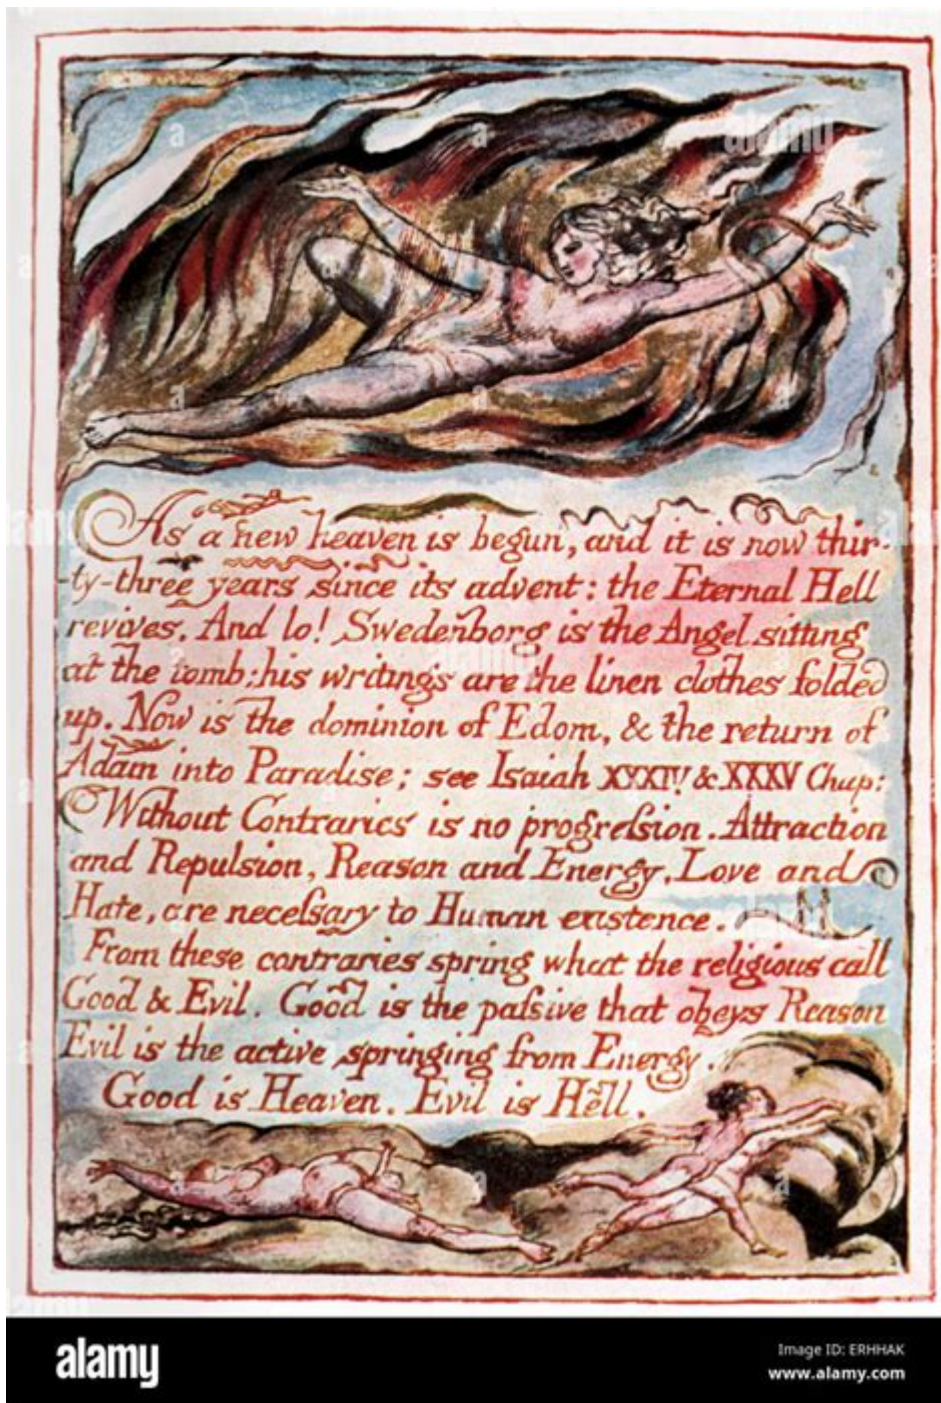 As a new heaven is begun, and it is now thir-
-ty-three years since its advent: the Eternal Hell
revives. And lo! Swedenborg is the Angel sitting
at the tomb; his writings are the linen clothes folded
up. Now is the dominion of Edom, & the return of
Adam into Paradise; see Isaiah XXXIV & XXXV Chap:
Without Contraries is no progreſsion. Attraction
and Repulsion, Reason and Energy, Love and
Hate, are neceſsary to Human existence.
From these contraries spring what the religious call
Good & Evil. Good is the paſsive that obeys Reason
Evil is the active springing from Energy.
Good is Heaven. Evil is Hell.
alamy
Image ID: ERHHAK
www.alamy.com